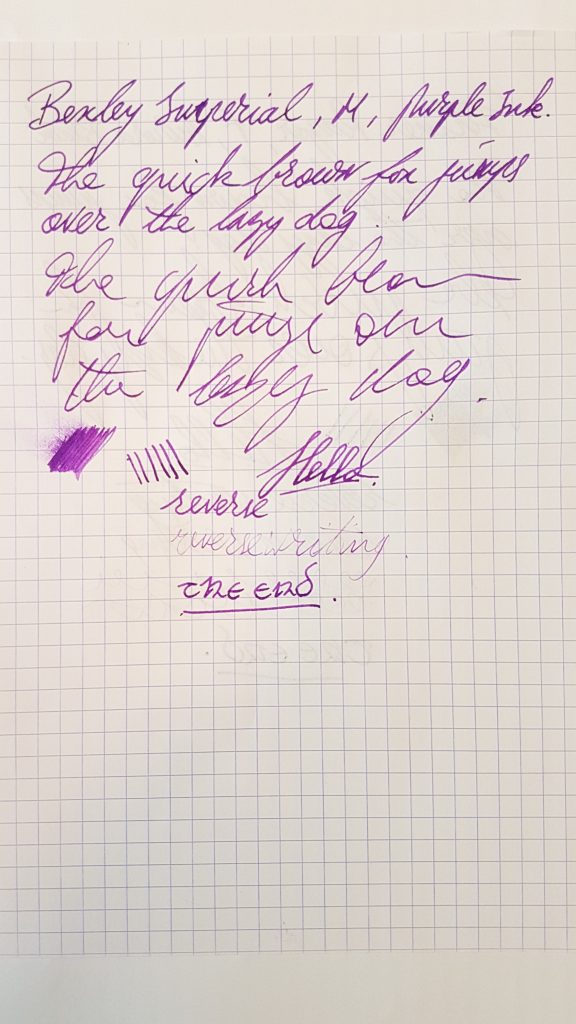 Bexley Imperial, M, Purple Ink.
The quick brown fox jumps
over the lazy dog.
The quick brown
fox jumps over
the lazy dog.
Hello.
reverse
reverse writing.
THE END.